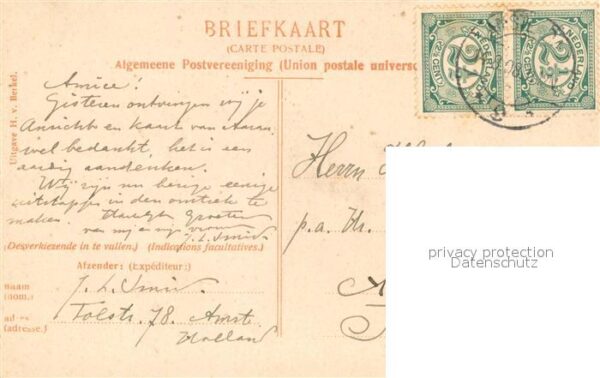 BRIEFKAART
(CARTE POSTALE)
Algemeene Postvereeniging (Union postale univers
Uitgave H. v. Berkel.
2½ CENT
NEDERLAND
2½ CENT
NEDERLAND
Amice!
Gisteren ontvingen wij je
Ansichten kaart van Aarau
wel bedankt, het is een
aardig aandenken.
Wij zijn nu bezig eenige
uitstapjes in den omtrek te
maken. Hartelijke Groeten
van mij en mijn vrouw
J. L.
(Desverkiezende in te vullen.) (Indications facultatives.)
Afzender: (Expéditeur:)
naam
(nom.)
J. L.
adres
(adresse.)
Tolstr. 78. Amst.
Holland
Herrn
p.a. Hr.
privacy protection
Datenschutz